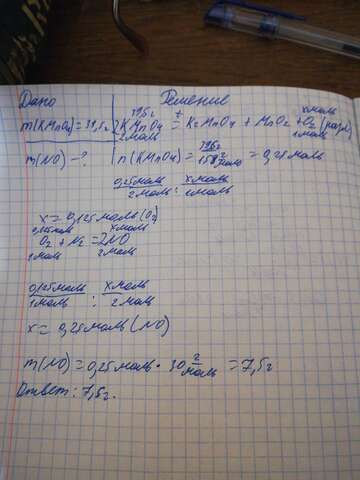 Дано
Решение
39,5г
x моль
m(KMnO4)=39,5г
2KMnO4 =t K2MnO4 + MnO2 + O2 (разл)
2моль
1моль
m(NO) - ?
n(KMnO4) = 39,5г / 158 г/моль = 0,25 моль
0,25моль / 2моль : x моль / 1моль
x = 0,125 моль (O2)
0,125моль
x моль
O2 + N2 = 2NO
1моль
2моль
0,125моль / 1моль : x моль / 2моль
x = 0,25моль (NO)
m(NO) = 0,25 моль · 30 г/моль = 7,5г
Ответ: 7,5г.